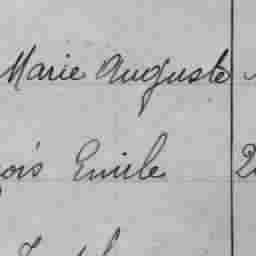 Marie Auguste
ois Emile 2